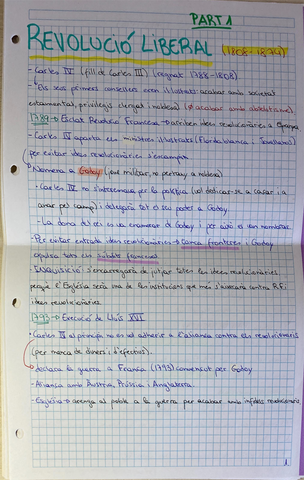 PART 1
REVOLUCIÓ LIBERAL (1808-1874)
- Carles IV (fill de Carles III) (regnat 1788-1808)
Els seus primers consellers eren il·lustrats acabar amb societat
estamental, privilegis clergat i noblesa) (Ø acabar amb absolutisme)
1789 → Esclat Revolució Francesa → arriben idees revolucionàries a Espanya
- Carles IV aparta els ministres il·lustrats (Floridablanca i
per evitar idees revolucionàries s'escampin.
Nomena a Godoy (jove militar, no pertany a noblesa)
- Carles IV no s'interessa per la política (vol dedicar-se a casar i a
anar pel camp) i delegarà tot el seu poder a Godoy.
- La dona del rei es va enamorar de Godoy i per això es van nombrar.
- Per evitar entrada idees revolucionàries → tanca fronteres i Godoy
expulsa tots els súbdits francesos
- INQUISICIÓ → s'encarregarà de jutjar totes les idees revolucionàries
perquè l'Església serà una de les institucions que més s'avesarà contra R.F i
idees revolucionàries.
1793 → Execució de Lluís XVI
- Carles IV al principi no es vol adherir a l'aliança contra els revolucionaris
(per manca de diners i d'efectius).
declara la guerra a França (1793) convençut per Godoy
- Aliança amb Àustria, Prússia i Anglaterra.
- Església → arenga al poble a la guerra per acabar amb infidels revolucionaris
1